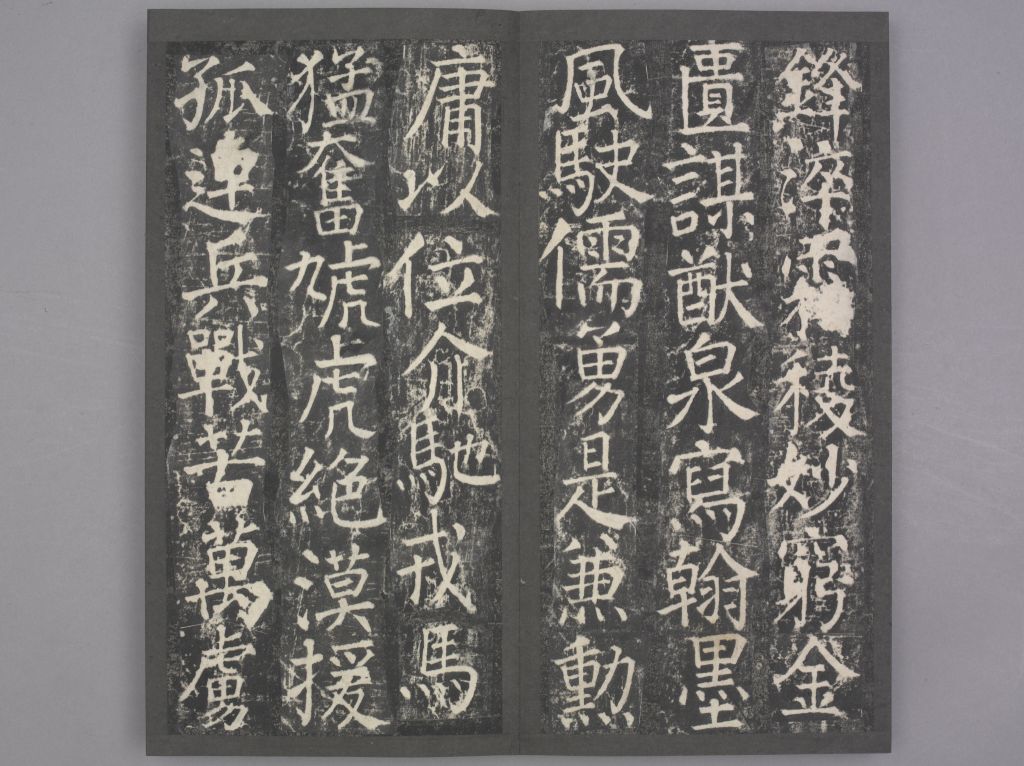 鋒淬稜妙窮金
匱謀猷泉寫翰墨
風駛儒勇是兼勳
庸以位馳戎馬
猛奮虓虎絕漠援
孤連兵戰苦萬虜